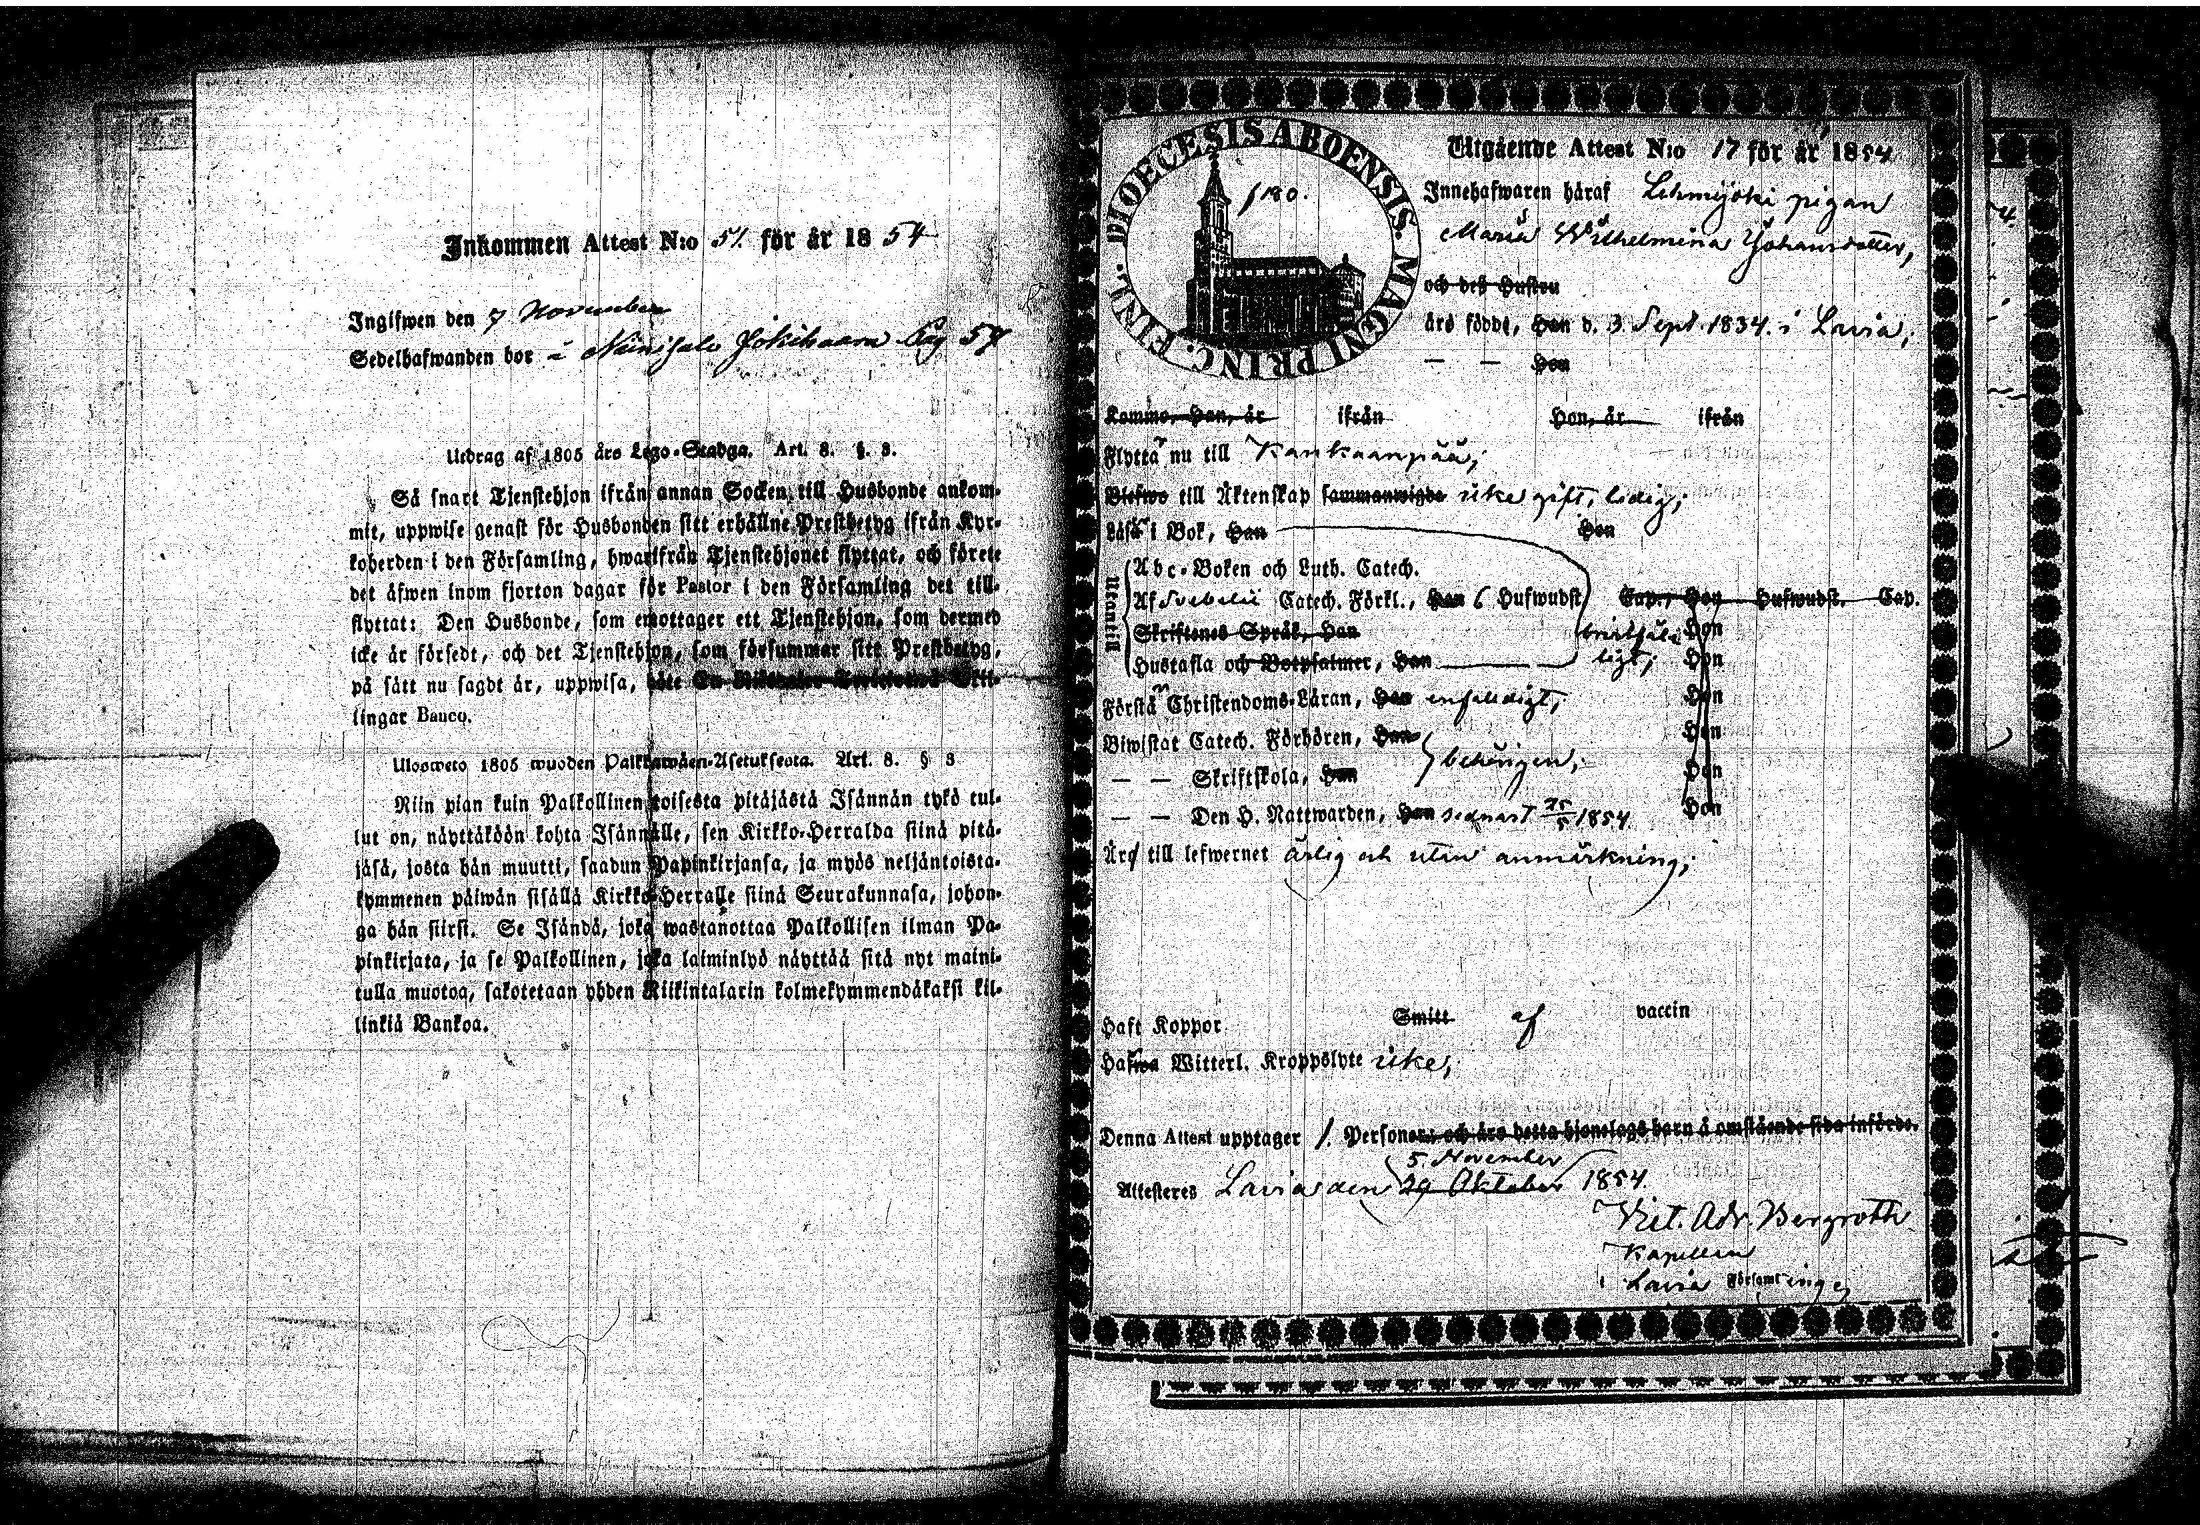 Inkommen Attest N:o 51 för år 1854
Ingifwen den 7 November
Sedelhafwanden bor å Niinisalo Jokihaara Pag 57
Utdrag af 1805 års Lego-Stadga. Art. 8. §. 3.
Så snart Tjenstehjon ifrån annan Socken, till Husbonde ankom-
mit, uppwise genast för Husbonden sitt erhållne Prestbetyg ifrån Kyr-
koherden i den Församling, hwarifrån Tjenstehjonet flyttat, och förete
det äfwen inom fjorton dagar för Pastor i den Församling det till-
flyttat: Den Husbonde, som emottager ett Tjenstehjon, som dermed
icke är försedt, och det Tjenstehjon, som försummar sitt Prestbetyg,
på sätt nu sagdt är, uppwisa, böte En Riksdaler Trettiotvå Skil-
lingar Banco.
Ulosweto 1805 wuoden Palkkawäen-Asetuksesta. Art. 8. § 3
Niin pian kuin Palkollinen toisesta pitäjästä Isännän tykö tul-
lut on, näyttäköön kohta Isännälle, sen Kirkko-Herralda siinä pitä-
jäsä, josta hän muutti, saadun Papinkirjansa, ja myös neljäntoista-
kymmenen päiwän sisällä Kirkko-Herralle siinä Seurakunnasa, johon-
ga hän siirsi. Se Isändä, joka wastanottaa Palkollisen ilman Pa-
pinkirjata, ja se Palkollinen, joka laiminlyö näyttää sitä nyt maini-
tulla muotoa, sakotetaan yhden Riikintalarin kolmekymmendäkaksi kil-
linkiä Bankoa.
DIOECESIS ABOENSIS. MAGNI PRINC. FINL.
p 180.
Utgående Attest N:o 17 för år 1854
Innehafwaren häraf Lehmijoki pigan
Maria Wilhelmina Johansdotter,
och dess Hustru
äro födde, Han d. 3 Sept. 1834. i Lavia,
— — Hon
Kommo, Han, år ifrån Hon, år ifrån
Flytta nu till Kankaanpää,
Blefwo till Äktenskap sammanwigde icke gift, ledig,
Läsa i Bok, Han Hon
Utantill
Abc-Boken och Luth. Catech.
Af Svebelii Catech. Förkl., Han 6 Hufwudst. Cap., Hon Hufwudst. Cap.
Skriftenes Språk, Han Hon
Hustafla och Botpsalmer, Han Hon
Förstå Christendoms-Läran, Han enfaldigt, Hon
Biwistat Catech. Förhören, Han Hon
— — Skriftskola, Han behörigen, Hon
— — Den H. Nattwarden, Han sednast 25/5 1854 Hon
Äro till lefwernet ärlig och utan anmärkning,
Haft Koppor Smitt af vaccin
Hafwa Witterl. Kroppslyte icke,
Denna Attest upptager 1 Personer: och äro detta hjonelags barn å omstående sida införde.
5. November
Attesteres Lavia den 29 Oktober 1854
Vict. Adr. Bergroth
Kapellan
i Lavia Församlinge